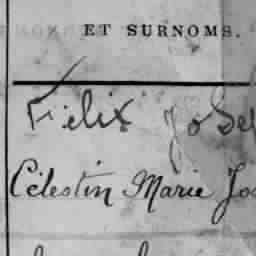 ET SURNOMS.
Félix Jose
Célestin Marie Jos